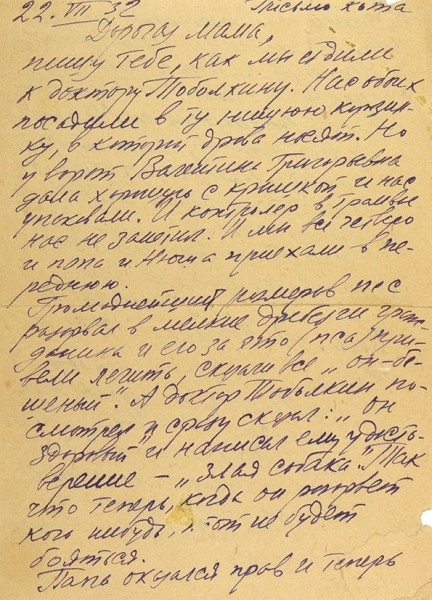 22. III 32 Письмо кота
Дорогая мама,
пишу тебе, как мы ездили
к доктору Тоболкину. Нас обоих
посадили в ту нишую корзин-
ку, в которой дрова носят. Но
у ворот Валентина Григорьевна
дала корзину с крышкой и нас
упаковали. И контролер в трамвае
нас не заметил. И мы все честно
и папа и Нюша приехали в пе-
реднюю.
Громаднейший размеров пес
разорвал в мелкие дребезги граж-
данина и его за это (пса) при-
вели лечить, сказали все „он-бе-
шеный". А доктор Тоболкин по-
смотрел и сразу сказал: „он
здоровый" и написал ему удосто-
верение – „злая собака". Так
что теперь, когда он разорвет
кого нибудь, тот не будет
бояться.
Папа оказался прав и теперь